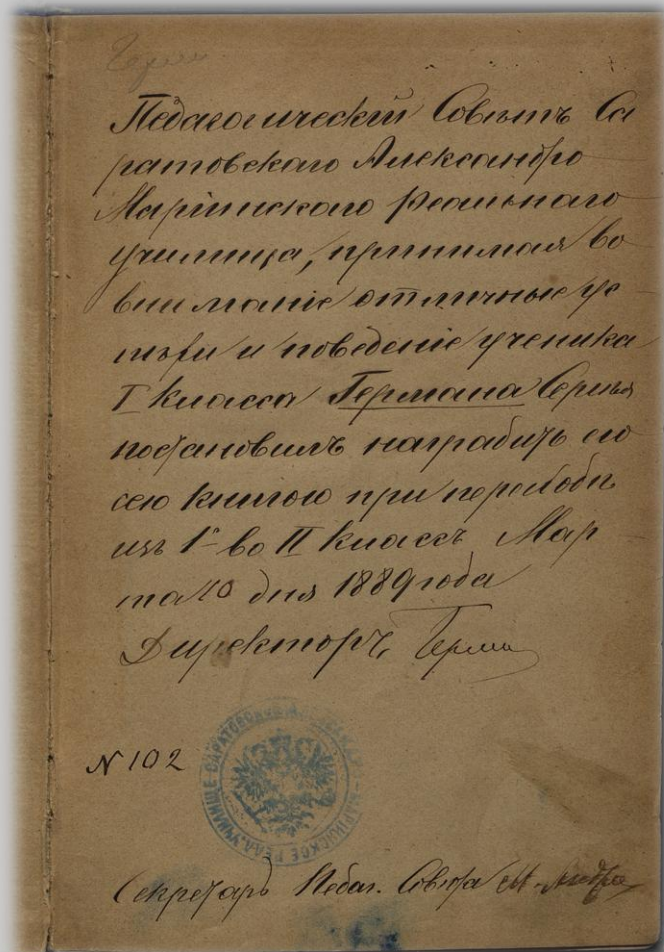 Педагогическій Совѣтъ Са
ратовскаго Александро
Маріинскаго реальнаго
училища, принимая во
вниманіе отличные ус-
пѣхи и поведеніе ученика
I класса Германа Сергѣя
постановилъ наградить его
сею книгою при переводѣ
изъ 1го во II классъ Мар
та 10 дня 1889 года
Директоръ
N 102
САРАТОВСКОЕ АЛЕКСАНДРО-МАРІИНСКОЕ РЕАЛ. УЧИЛИЩЕ
Секретарь Педаг. Совѣта М.